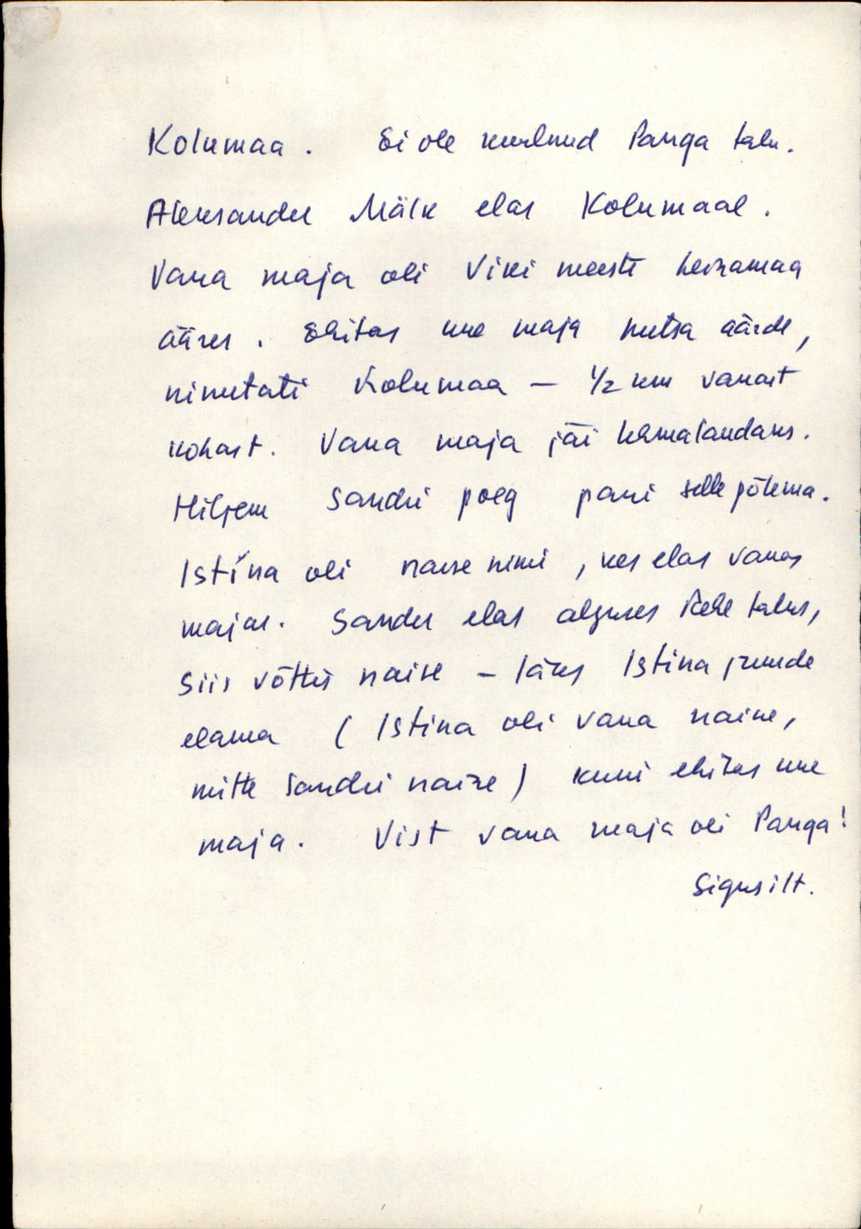 Kolumaa. Ei ole kuulnud Panga talu.
Aleksander Mälk elas Kolumaal.
Vana maja oli Viki meeste heinamaa
ääres. Ehitas uue maja metsa äärde,
nimetati Kolumaa – 1/2 km vanast
kohast. Vana maja jäi
Hiljem Sandri poeg pani selle põlema.
Istina oli naise nimi, kes elas vanas
majas. Sander elas alguses talus,
siis võttis naise – läks Istina juurde
elama (Istina oli vana naine,
mitte Sandri naine) kuni ehitas uue
maja. Vist vana maja oli Panga!